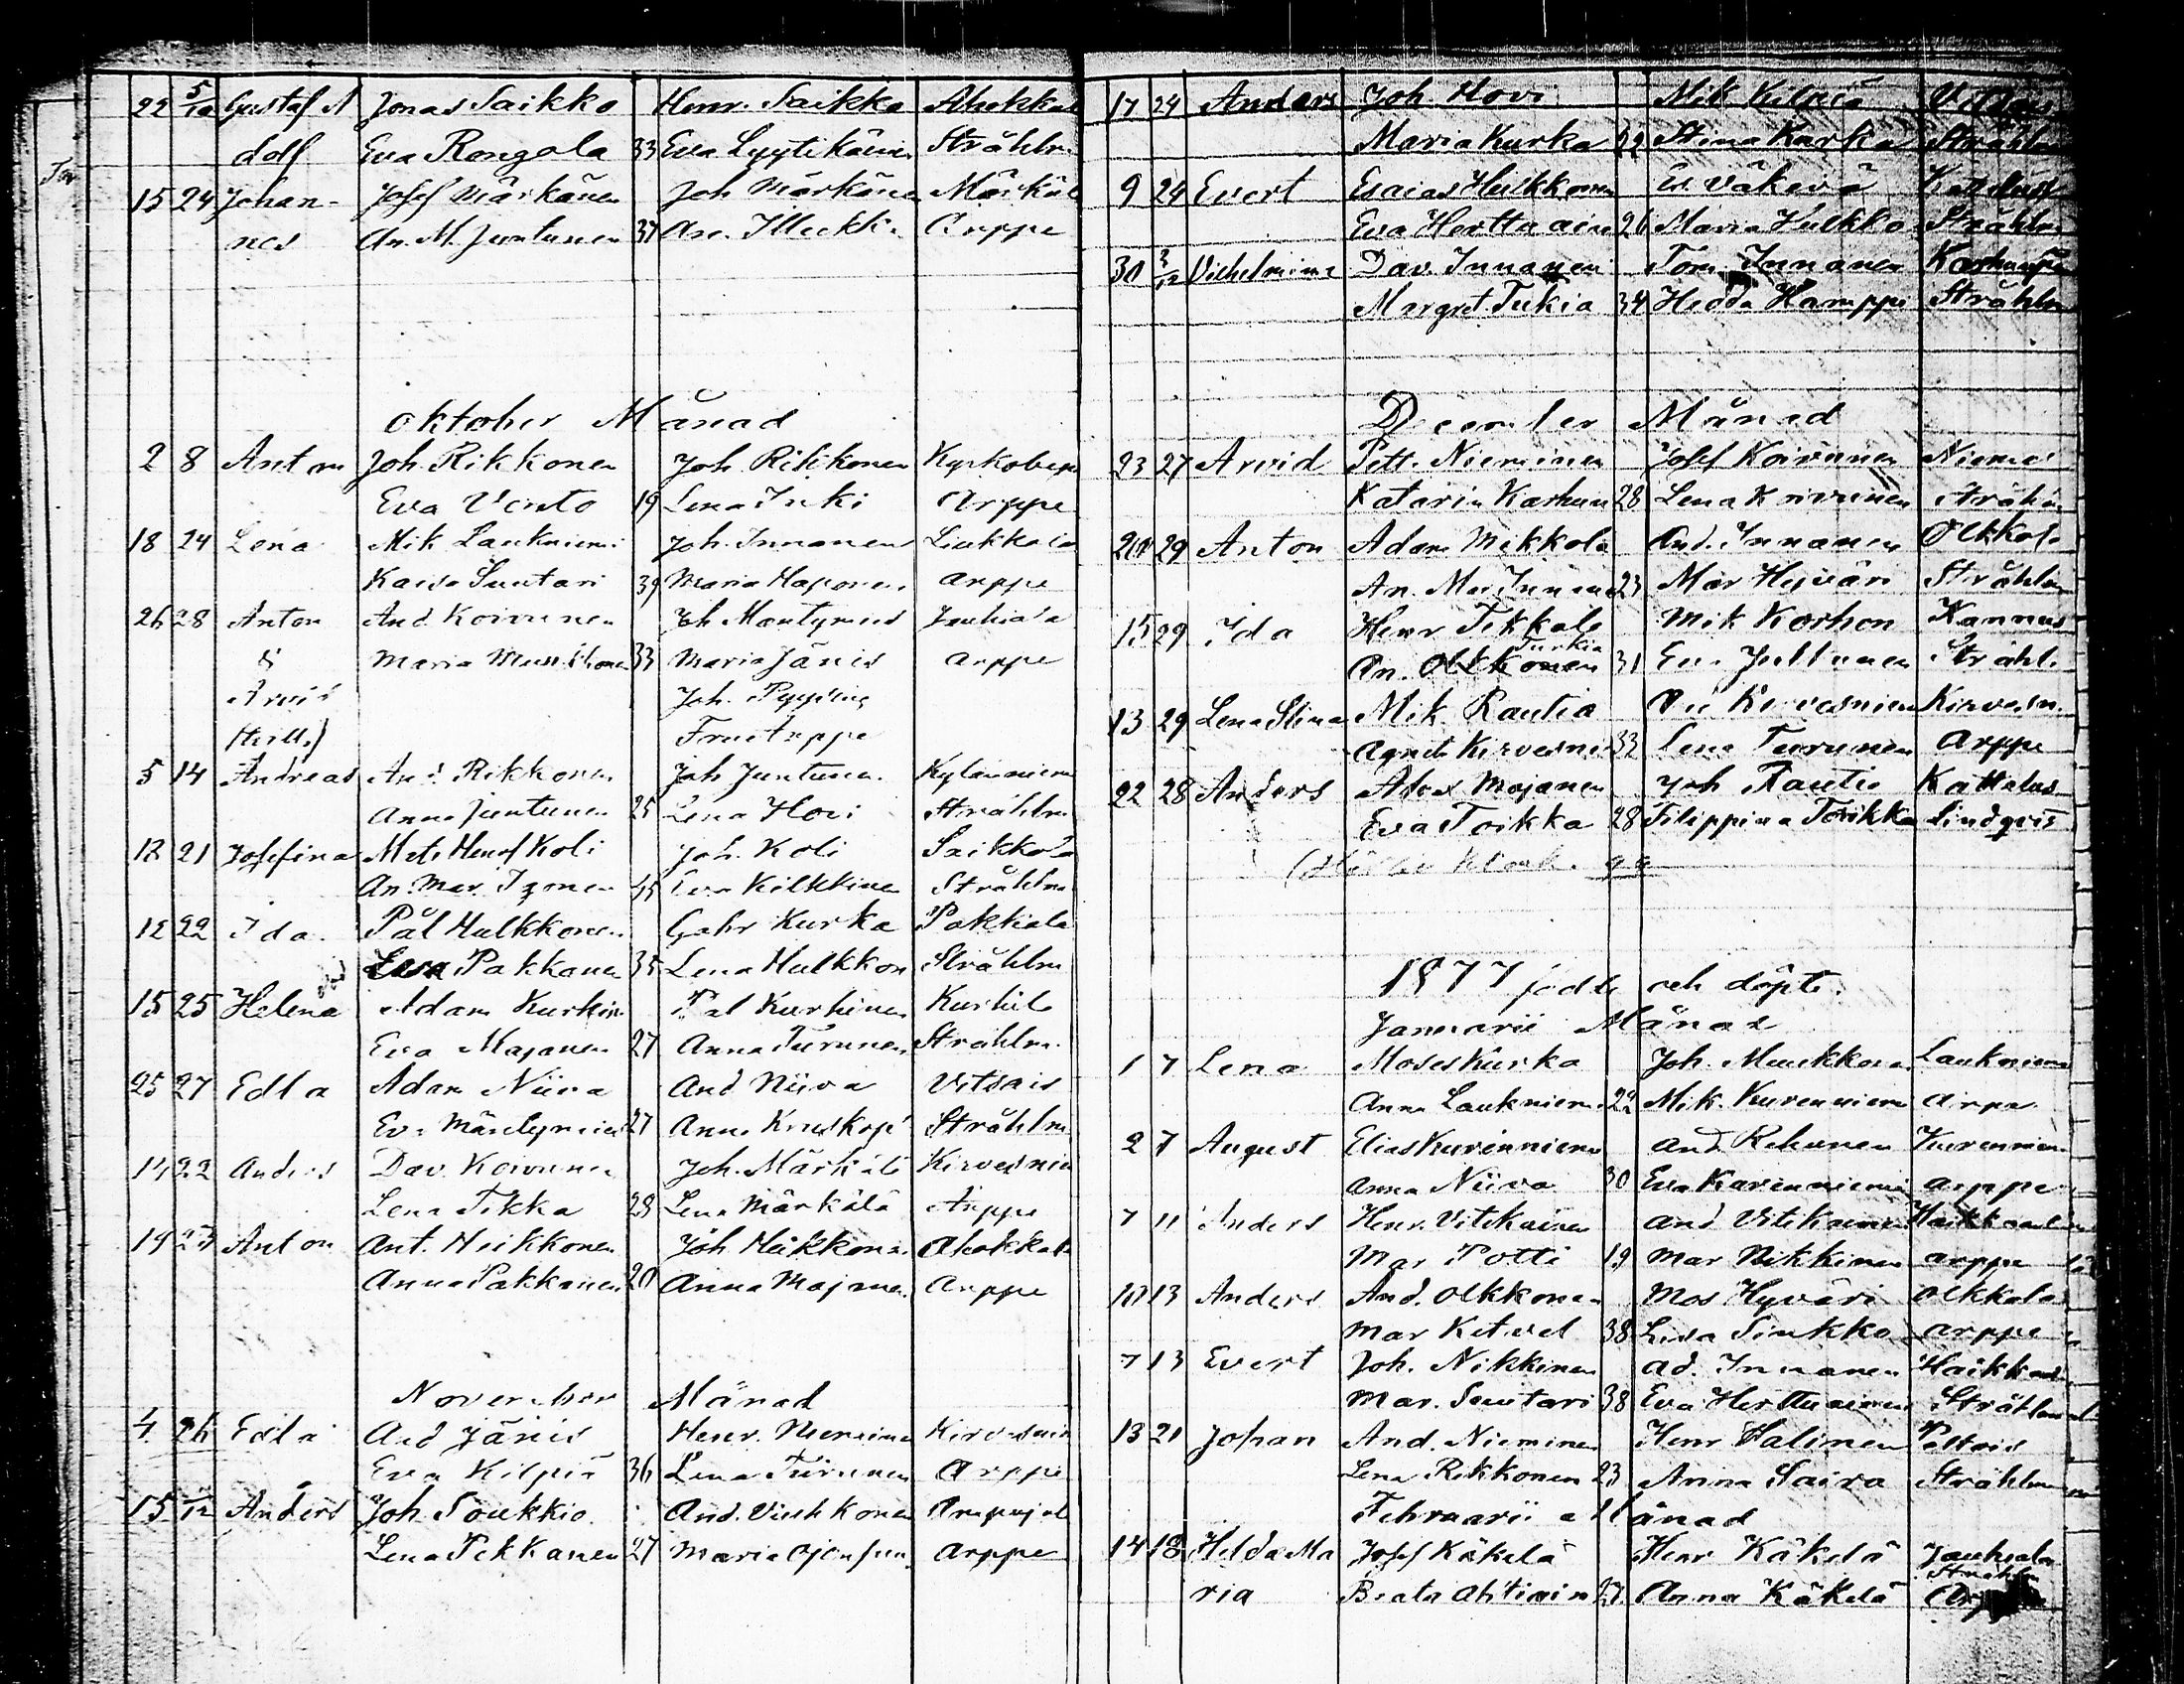 22 5/10 Gustaf A Jonas Saikko Henr. Saikko Ahokkal
dolf Eva Rongola 33 Eva Lyytikäinen Stråhlm
15 24 Johan- Josef Märkänen Joh Märkänen Märkäl
nes An. M. Juntunen 37 Arppe
Oktober Månad
2 8 Anton Joh. Rikkonen Joh. Rikkonen Kyrkoby
Eva Vento 19 Lena Inki Arppe
18 24 Lena Mik Laukniemi Joh. Innanen Liukkala
Kaisa Suutari 39 Maria Haponen Arppe
26 28 Anton And Koivunen Joh Mäntynies Jauhiala
& Maria Musikkonen 33 Maria Jänis Arppe
Arvid Joh. Pyysing
(tvill.) Fru Arppe
5 14 Andreas And Rikkonen Joh Juntunen Kylänniem
Anna Juntunen 25 Lena Hovi Stråhlm
12 21 Josefina Mats Henr Koli Joh. Koli Saikkola
An. Mar. Ikonen 45 Eva Kilkkinen Stråhlm
12 22 Ida Pål Hulkkonen Gabr Kurka Pakkala
Eva Pakkanen 35 Lena Hulkkon Stråhlm
15 25 Helena Adam Kurkin Pål Kurkinen Kurkile
Eva Majanen 27 Anna Turunen Stråhlm.
25 27 Edla Adam Niiva And Niiva Vitsais
Ev. Mäntynies 27 Anna Kruskop Stråhlm
14 22 Anders Dav. Koivunen Joh. Märkälä Kirvesnie
Lena Tikka 28 Lena Märkälä Arppe
19 23 Anton Ant. Heikkonen Joh Heikkonen Ahokkala
Anna Pakkanen 20 Anna Majanen Arppe
November Månad
4 26 Edla And Jänis Henr. Nieminen Kirvesnie
Eva Kilpiä 36 Lena Turunen Arppe
15 /12 Anders Joh. Soukkio And. Viukkonen
Lena Pekkanen 27 Maria Arppe
17 24 Anders Joh. Hovi Mik Kilpiä Vitsais
Maria Kurka 32 Stina Karka Stråhlm
9 24 Evert Esaias Hulkkonen Es. Väkevä
Eva Herttuain 26 Maria Hulkko Stråhlm
30 3/12 Vilhelmina Dav. Innanen Tom. Innanen
Margret. Tukia 34 Hedda Hamppi Stråhlm
December Månad
23 27 Arvid Pett. Nieminen Josef Koivunen Nieme
Katarin Karhun 28 Lena Koivunen Stråhlm
20 29 Anton Adam Mikkola And. Innanen Olkkola
An. Mar Innan 23 Mar Hyväri Stråhlm
15 29 Ida Henr Tikkala Mik Korhon Kannus
Turkia
An. Olkkonen 31 Eva Jultunen Stråhl.
13 29 Lena Stina Mik. Rautia Kirvesnien Kirvesn.
Agneta Kirvesni 32 Lena Turunen Arppe
22 28 Anders Alex Majanen Joh Rautio Kattelus
Eva Toikka 28 Filippina Toikka Lindqvis
1877 födde och döpte.
Januarii Månad
1 7 Lena Moses Kurka Joh. Muukkonen Laukniem
Anna Laukniem 22 Mik. Kurenniem Arpe
2 7 August Elias Kurenniem And Rehunen Kurennien
Anna Niiva 30 Eva Karenniemi Arppe
7 11 Anders Henr. Vitikainen And Vitikainen Haikkaal
Mar Potti 19 Mar Nikkinen Arppe
10 13 Anders And. Olkkonen Mos Hyväri Olkkola
Mar Ketvel 38 Lisa Sinkko Arppe
7 13 Evert Joh. Nikkinen Ad. Innanen Haikkaa
Mar. Suutari 38 Eva Herttuainen Stråhlm
13 21 Johan And. Nieminen Henr Salinen Peltois
Lena Rikkonen 23 Anna Saira Stråhlm
Februarii Månad
14 18 Hilda Ma Josef Käkelä Henr Käkelä Jauhiala
Stråhlm
ria Beata Ahtiain 27 Anna Käkelä